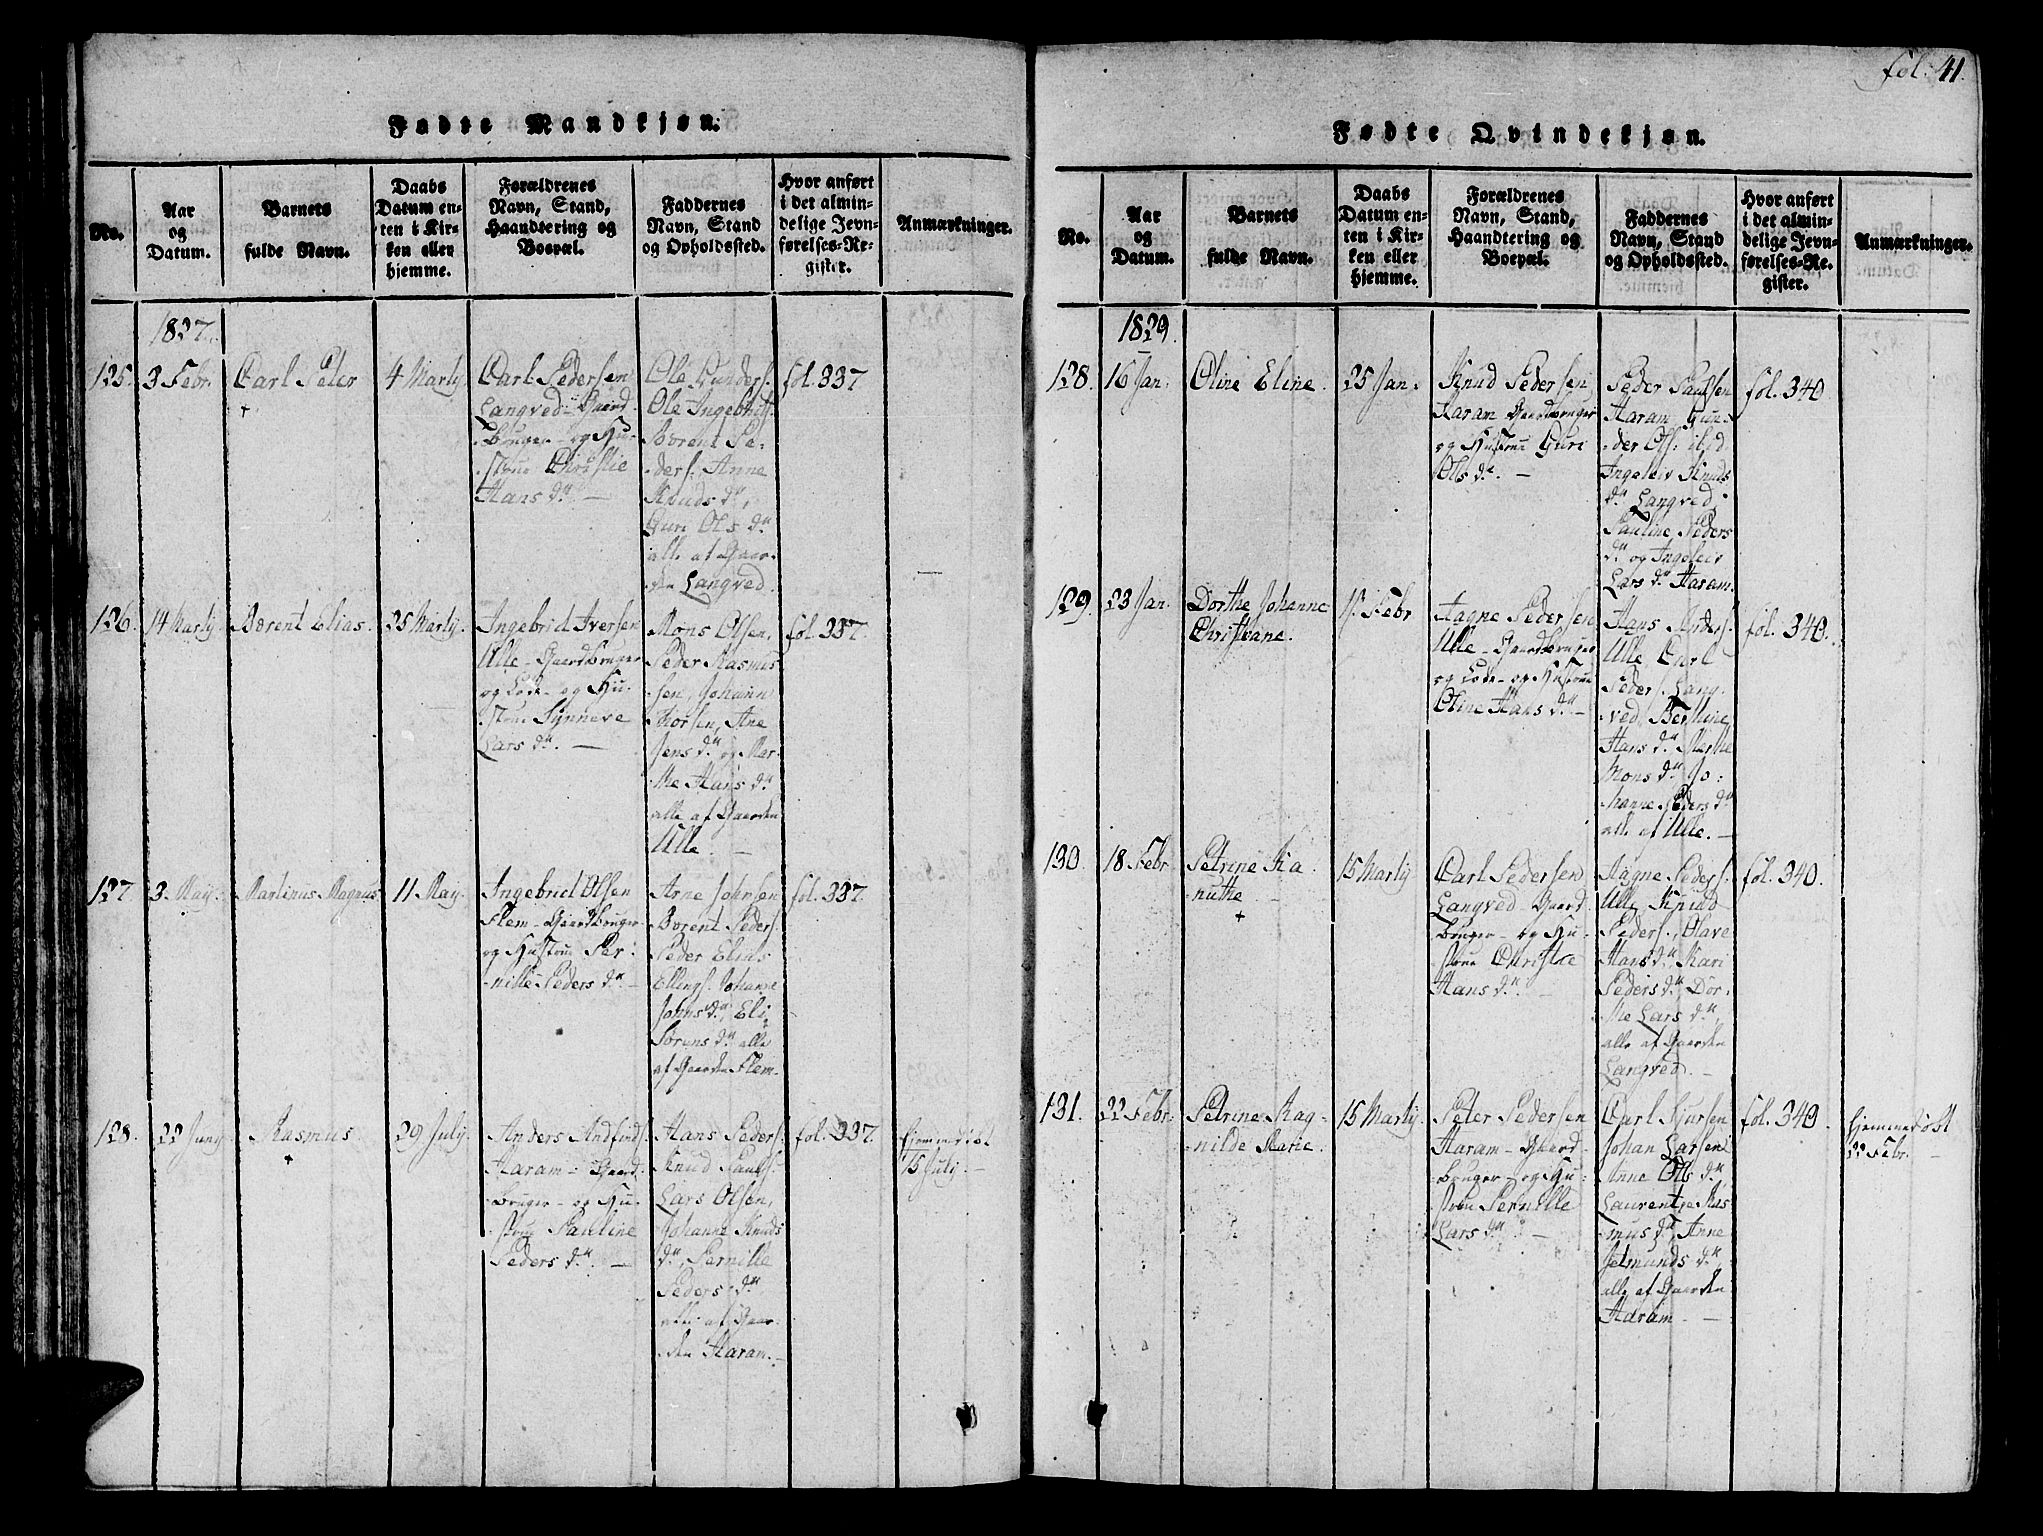 fol: 41.
Fødte Mandkjøn.
No.
Aar
og
Datum.
Barnets
fulde Navn.
Daabs
Datum en-
ten i Kir-
ken eller
hjemme.
Forældrenes
Navn, Stand,
Haandtering og
Boepæl.
Faddernes
Navn, Stand
og Opholdssted.
Hvor anført
i det almin-
delige Jevn-
førelses-Re-
gister.
Anmærkninger.
1827.
125.
3 Febr.
Carl Peter
+
4 Martij
Carl Pedersen
Langved - Gaard
bruger - og Hu-
strue Christie
Hans dr. —
Ole Gunders.
Ole Ingebrigts.
Børent Pe-
ders. Anne
Knuds dr,
Guri Ols dr.
alle af Gaar-
den Langved.
fol. 337
126.
14 Martij
Børent Elias.
25 Martij.
Ingebrid Iversen
Ulle - Gaardbruger
og Lods - og Hu-
strue Synneve
Lars dr. —
Mons Olsen,
Peder Rasmus
sen, Johann
Thorsen, Ane
Jens dr og Mar-
the Hans dr.
alle af Gaarden
Ulle. —
fol. 337.
127.
3. May.
Martinus Magnus
11 May.
Ingebrid Olsen
Flem - Gaardbruger
og Hustrue Per-
nille Peders dr. -
Arne Johnsen
Børent Peders.
Peder Elias
Ellings. Johanne
Johns dr, Eli
Søruns dr. alle
af Gaarden Flem-
fol. 337.
128.
22 Junij
Rasmus
+
29 Julij.
Anders Andfinds.
Haram - Gaard
bruger - og Hu-
strue Pauline
Peders dr. —
Hans Peders.
Knud Pauls.
Lars Olsen,
Johanne Knuds
dr, Pernille
Peders dr
alle af Gaar-
den Haram. -
fol. 337.
Hjemmedøbt
15 Julij. -
Fødte Qvindekjøn.
No.
Aar
og
Datum.
Barnets
fulde Navn.
Daabs
Datum en-
ten i Kir-
ken eller
hjemme.
Forældrenes
Navn, Stand,
Haandtering og
Boepæl.
Faddernes
Navn, Stand
og Opholdssted.
Hvor anført
i det almin-
delige Jevn-
førelses-Re-
gister.
Anmærkninger.
1829.
128.
16 Jan.
Oline Eline.
25 Jan.
Knud Pedersen
Haram Gaardbruger
og Hustrue Guri
Ols dr. —
Peder Paulsen
Haram, Gun-
der Ols.
Ingeleiv Knuds
dr Langved,
Pauline Peders
dr. og Ingeleiv
Lars dr Haram.
fol. 340
129.
23 Jan.
Dorthe Johanne
Christiane.
11. Febr
Aagne Pedersen
Ulle - Gaardbruger
og Lods - og Hustrue
Oline Hans dr -
Hans Anders.
Ulle Carl
Peders. Lang-
ved, Berthine
Hans dr. Merthe
Mons dr. Jo-
hanne Peders dr
alle af Ulle. —
fol. 340.
130.
18 Febr
Petrine Ka-
nuthe
+
15 Martij
Carl Pedersen
Langved - Gaard
bruger - og Hu-
strue Christie
Hans dr. -
Aagne Peders.
Ulle, Knud
Peders., Olave
Hans dr. Kari
Peders dr. Dor-
the Lars dr,
alle af Gaarden
Langved. -
fol. 340.
131.
22 Febr.
Petrine Rag-
nilde Marie.
15 Martij
Peter Pedersen
Haram - Gaard-
bruger - og Hu-
strue Pernille
Lars dr. -
Carl Siursen
Johan Larsen
Anne Ols dr,
Laurentze Ras
mus dr, Anne
Jetmunds dr
alle af Gaarden
Haram -
fol. 340
Hjemmedøbt
22 Febr. -